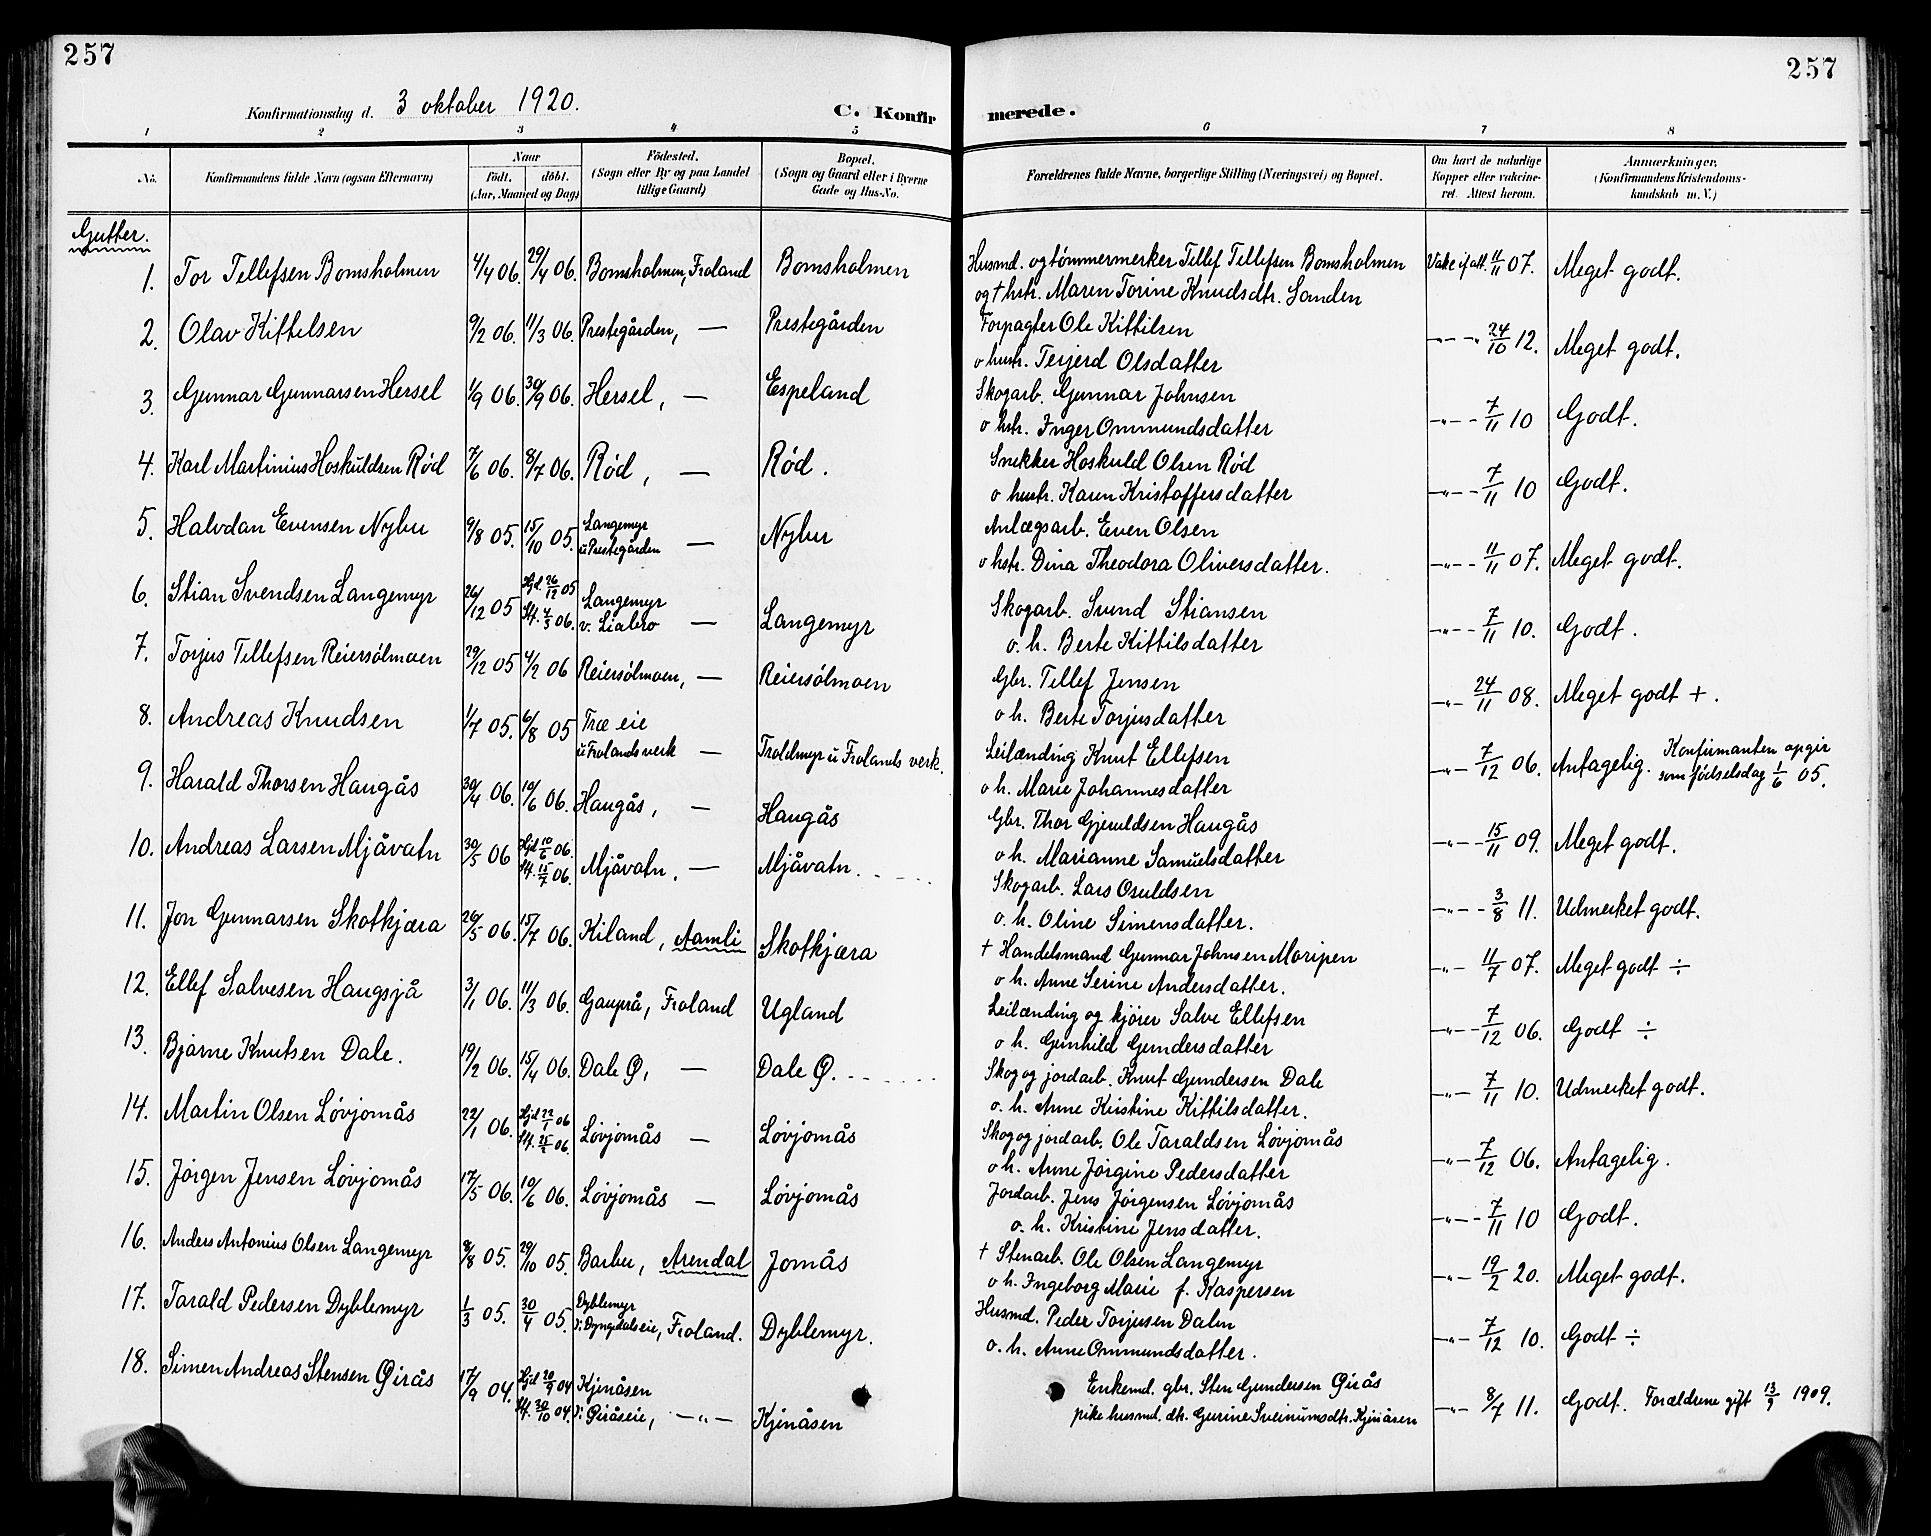 257
257
Konfirmationsdag d. 3 oktober 1920.
C. Konfirmerede.
1 2 3 4 5 6 7 8
No. Konfirmandens fulde Navn (ogsaa Efternavn) Naar födt. döbt. (Aar, Maaned og Dag) Födested. (Sogn eller By og paa Landet tillige Gaard) Bopæl. (Sogn og Gaard eller i Byerne Gade og Hus-No. Forældrenes fulde Navne, borgerlige Stilling (Næringsvei) og Bopæl. Om havt de naturlige Kopper eller vakcineret. Attest herom. Anmærkninger, (Konfirmandens Kristendomskundskab m. V.)
Gutter.
1. Tor Tellefsen Bomsholmen 4/4 06. 29/4 06. Bomsholmen, Froland Bomsholmen Husmd. og tømmermerker Tellef Tellefsen Bomsholmen Vakc. if. att. 11/11 07. Meget godt.
og † hstr. Maren Torine Knudsdtr. Landen
2. Olav Kittelsen 9/2 06. 11/3 06. Prestegården, — Prestegården Forpagter Ole Kittilsen —"— 24/10 12. Meget godt.
o hustr. Terjerd Olsdatter
3. Gunnar Gunnarsen Hersel 1/9 06. 30/9 06. Hersel, — Espeland Skogarb. Gunnar Johnsen —"— 7/11 10 Godt.
o hstr. Inger Ommundsdatter
4. Karl Martinius Hoskuldsen Rød 7/6 06. 8/7 06. Rød, — Rød. Snekker Hoskuld Olsen Rød —"— 7/11 10 Godt.
o hustr. Karen Kristoffersdatter
5. Halvdan Evensen Nybu 9/8 05. 15/10 05. Langemyr u Prestegården — Nybu Anlægsarb. Even Olsen —"— 11/11 07. Meget godt.
o hstr. Dina Theodora Oliversdatter.
6. Stian Svendsen Langemyr 26/12 05 Hjd. 26/12 05 St. 4/3 06. Langemyr v. Liabro — Langemyr Skogarb. Svend Stiansen —"— 7/11 10. Godt.
o. h. Berte Kittilsdatter
7. Torjus Tellefsen Reiersølmoen 29/12 05 4/2 06 Reiersølmoen, — Reiersølmoen Gbr. Tellef Jensen —"— 24/11 08. Meget godt +.
o h. Berte Torjusdatter
8. Andreas Knudsen 1/7 05. 6/8 05 Træ eie u Frolands verk — Troldmyr u Frolands verk. Leilænding Knut Ellefsen —"— 7/12 06. Antagelig. Konfirmanten opgir som fødselsdag 1/6 05.
o h. Marie Johannesdatter
9. Harald Thorsen Haugås 30/4 06. 10/6 06. Haugås, — Haugås Gbr. Thor Gjeruldsen Haugås —"— 15/11 09. Meget godt.
o h. Marianne Samuelsdatter
10. Andreas Larsen Mjåvatn 30/5 06 Hjd 10/6 06. St. 15/7 06. Mjåvatn. — Mjåvatn. Skogarb. Lars Osuldsen —"— 3/8 11. Udmerket godt.
o. h. Oline Simensdatter.
11. Jon Gunnarsen Skotkjæra 26/5 06. 15/7 06. Kiland, Aamli Skotkjæra † Handelsmand Gunnar Johnsen Moripen —"— 11/7 07. Meget godt ÷
o h. Anne Serine Andersdatter.
12. Ellef Salvesen Haugsjå 3/1 06. 11/3 06. Gauprå, Froland Ugland Leilænding og kjører Salve Ellefsen —"— 7/12 06. Godt ÷
o h. Gunhild Gundersdatter
13. Bjarne Knutsen Dale. 19/2 06. 15/4 06. Dale Ø, — Dale Ø. Skog og jordarb. Knut Gundersen Dale —"— 7/11 10. Udmerket godt.
o. h. Anne Kristine Kittilsdatter.
14. Martin Olsen Løvjomås 22/1 06. Hjd 22/1 06 St. 25/2 06. Løvjomås — Løvjomås Skog og jordarb. Ole Taraldsen Løvjomås —"— 7/12 06. Antagelig.
o h. Anne Jørgine Pedersdatter
15. Jørgen Jensen Løvjomås 17/5 06. 10/6 06. Løvjomås — Løvjomås Jordarb. Jens Jørgensen Løvjomås —"— 7/11 10 Godt.
o. h. Kristine Jensdatter.
16. Anders Antonius Olsen Langemyr 8/8 05. 29/10 05. Barbu, Arendal Jomås † Stenarb. Ole Olsen Langemyr —"— 19/2 20. Meget godt.
o h. Ingeborg Marie f. Kaspersen
17. Tarald Pedersen Dyblemyr 1/3 05. 30/4 05. Dyblemyr i Dyngdalseie, Froland. Dyblemyr. Husmd. Peder Torjusen Dalen —"— 7/12 10. Godt ÷
o. h. Anne Ommundsdatter.
18. Simen Andreas Stensen Øirås 17/9 04. Hjd 20/9 04 St. 30/10 04. Kjenåsen i Øiråseie, —"— Kjenåsen Enkemd. gbr. Sten Gundersen Øirås —"— 8/7 11. Godt. Forældrene gift 13/9 1909.
pike husmd. dtr. Gurine Sveinumsdtr. Kjenåsen